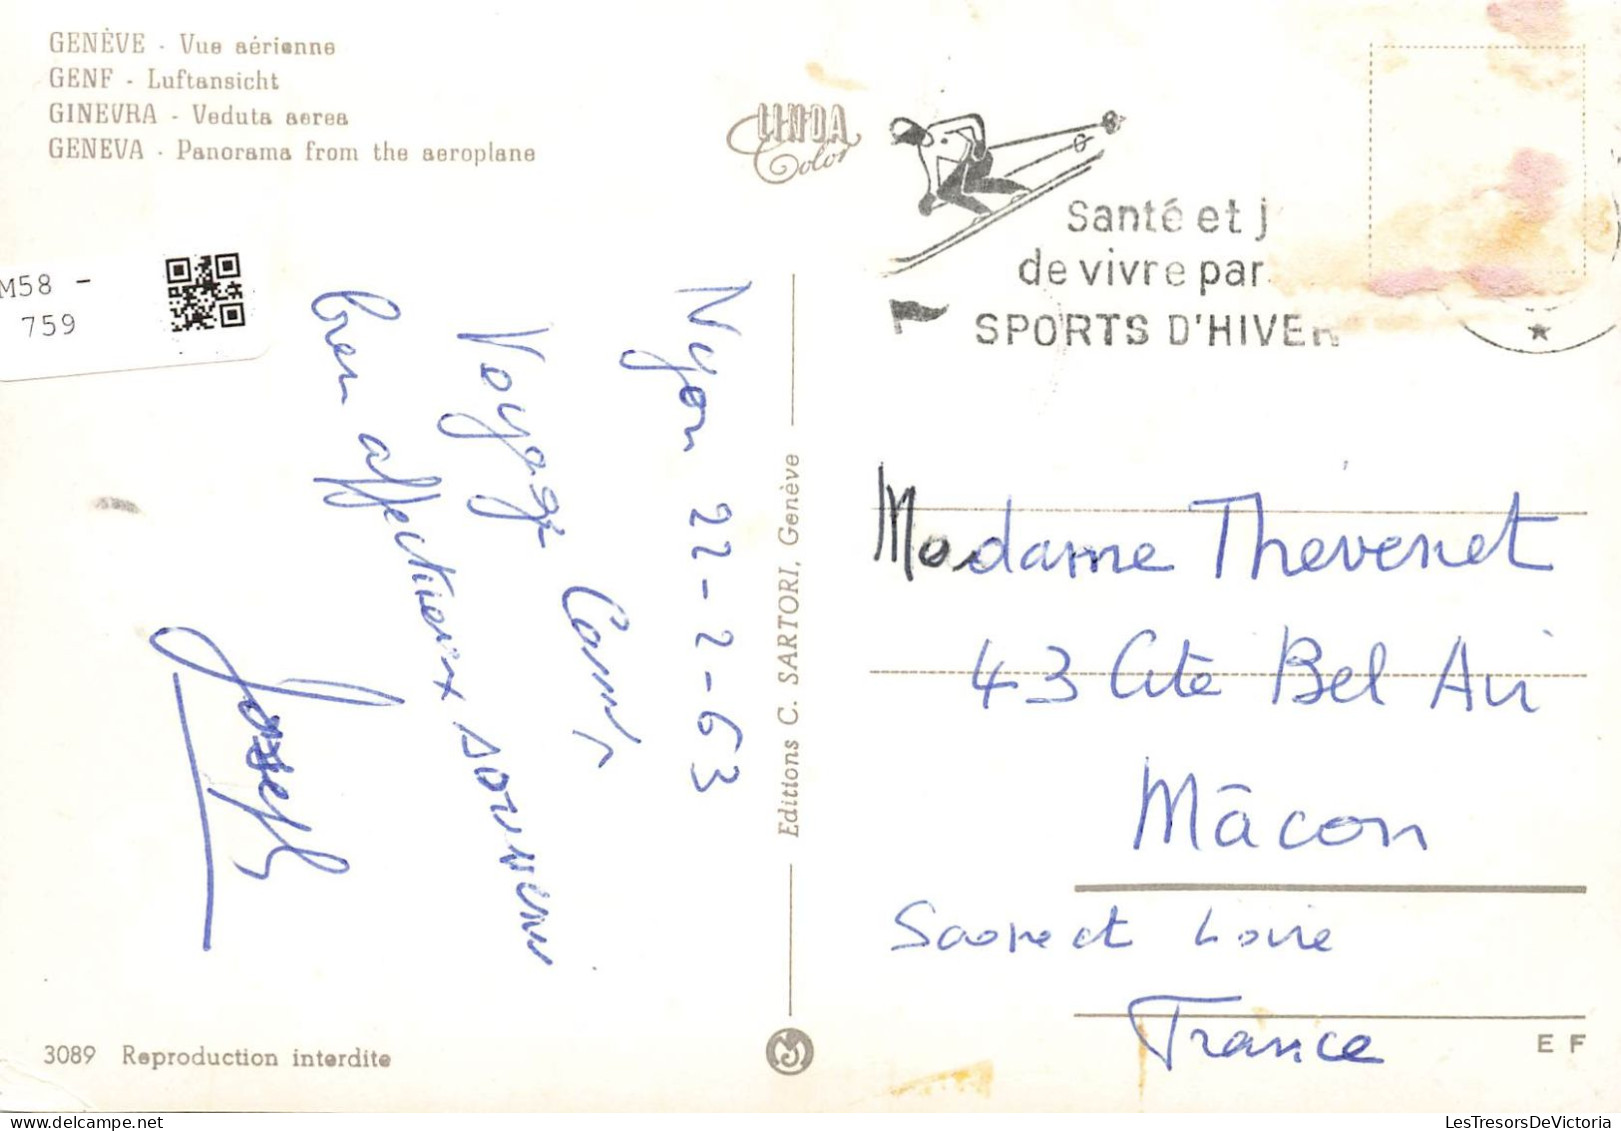 GENÈVE - Vue aérienne
GENF - Luftansicht
GINEVRA - Veduta aerea
GENEVA - Panorama from the aeroplane
LINDA
Color
Santé et j
de vivre par
SPORTS D'HIVER
M58 -
759
Nyon 22-2-63
Voyage
bien affectueux souvenir
Joseph
Editions C. SARTORI, Genève
Madame Thevenet
43 Cité Bel Air
Mâcon
Saone et Loire
France
3089 Reproduction interdite
E F
LesTresorsDeVictoria